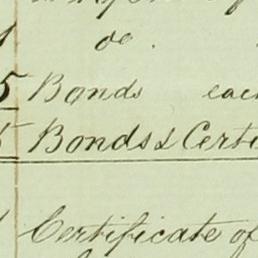 do.
5 Bonds each
5 Bonds & Certi
Certificate of